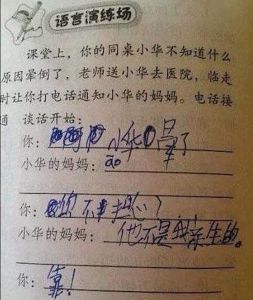 语言演练场
课堂上，你的同桌小华不知道什么
原因晕倒了，老师送小华去医院，临走
时让你打电话通知小华的妈妈。电话接
通　谈话开始：
你：小华晕了
小华的妈妈：ao
你：不担心？
小华的妈妈：他不是我亲生的。
你：靠！